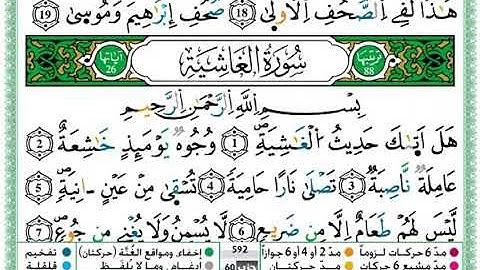 هَٰذَا لَفِي ٱلصُّحُفِ ٱلْأُولَىٰ 18 صُحُفِ إِبْرَٰهِيمَ وَمُوسَىٰ 19
ترتيبها 88 سُورَةُ الغَاشِيَةِ آياتها 26
بِسْمِ ٱللَّهِ ٱلرَّحْمَٰنِ ٱلرَّحِيمِ
هَلْ أَتَىٰكَ حَدِيثُ ٱلْغَٰشِيَةِ 1 وُجُوهٌ يَوْمَئِذٍ خَٰشِعَةٌ 2
عَامِلَةٌ نَّاصِبَةٌ 3 تَصْلَىٰ نَارًا حَامِيَةً 4 تُسْقَىٰ مِنْ عَيْنٍ ءَانِيَةٍ 5
لَّيْسَ لَهُمْ طَعَامٌ إِلَّا مِن ضَرِيعٍ 6 لَّا يُسْمِنُ وَلَا يُغْنِي مِن جُوعٍ 7
مدّ 6 حركات لزوماً مدّ 2 أو 4 أو 6 جوازاً 592 إخفاء، ومواقع الغُنَّة (حركتان) تفخيم
مدّ مشبع 6 حركات مدّ حركتان 60 إدغام، وما لا يُلفَظ قلقلة